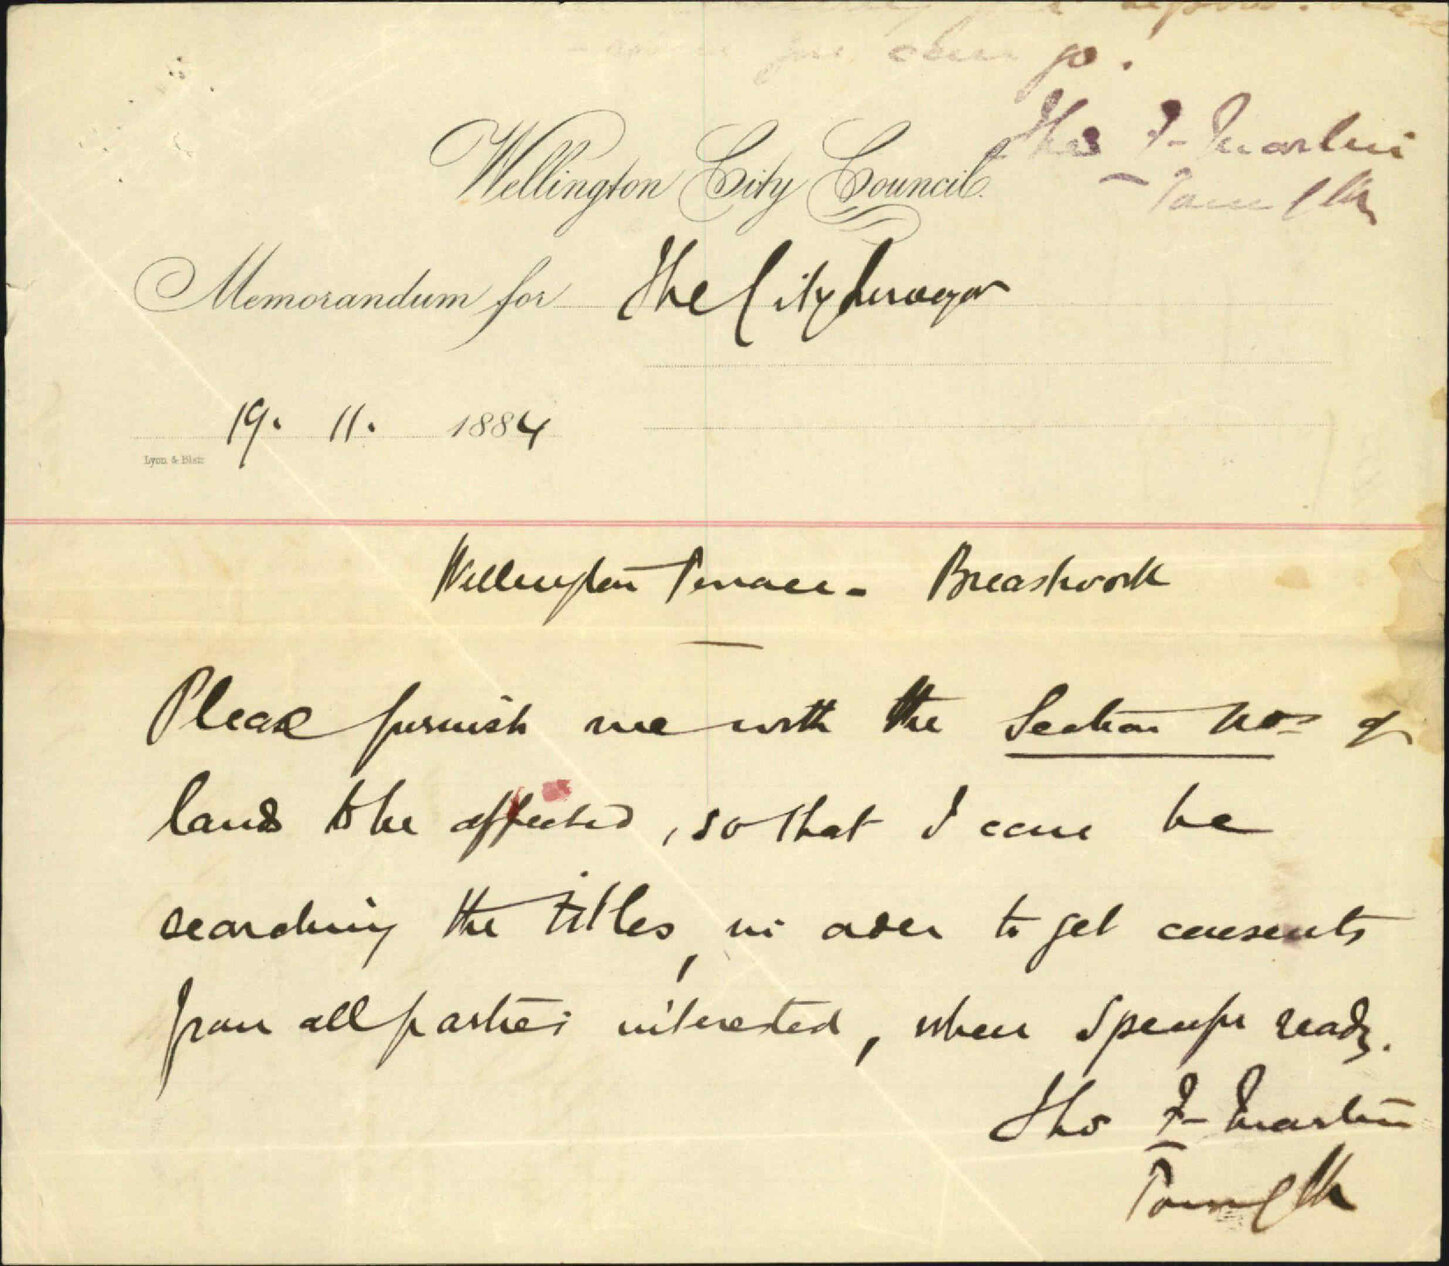 go.
Tho F. Martin
Town Clk
Wellington City Council.
Memorandum for The City Surveyor
19. 11. 1884
Lyon & Blair
Wellington Terrace - Breastwork
Please furnish me with the Section Nos of
lands to be affected, so that I can be
searching the titles, in order to get consents
from all parties interested, when specifn ready.
Tho F. Martin
Town Clk